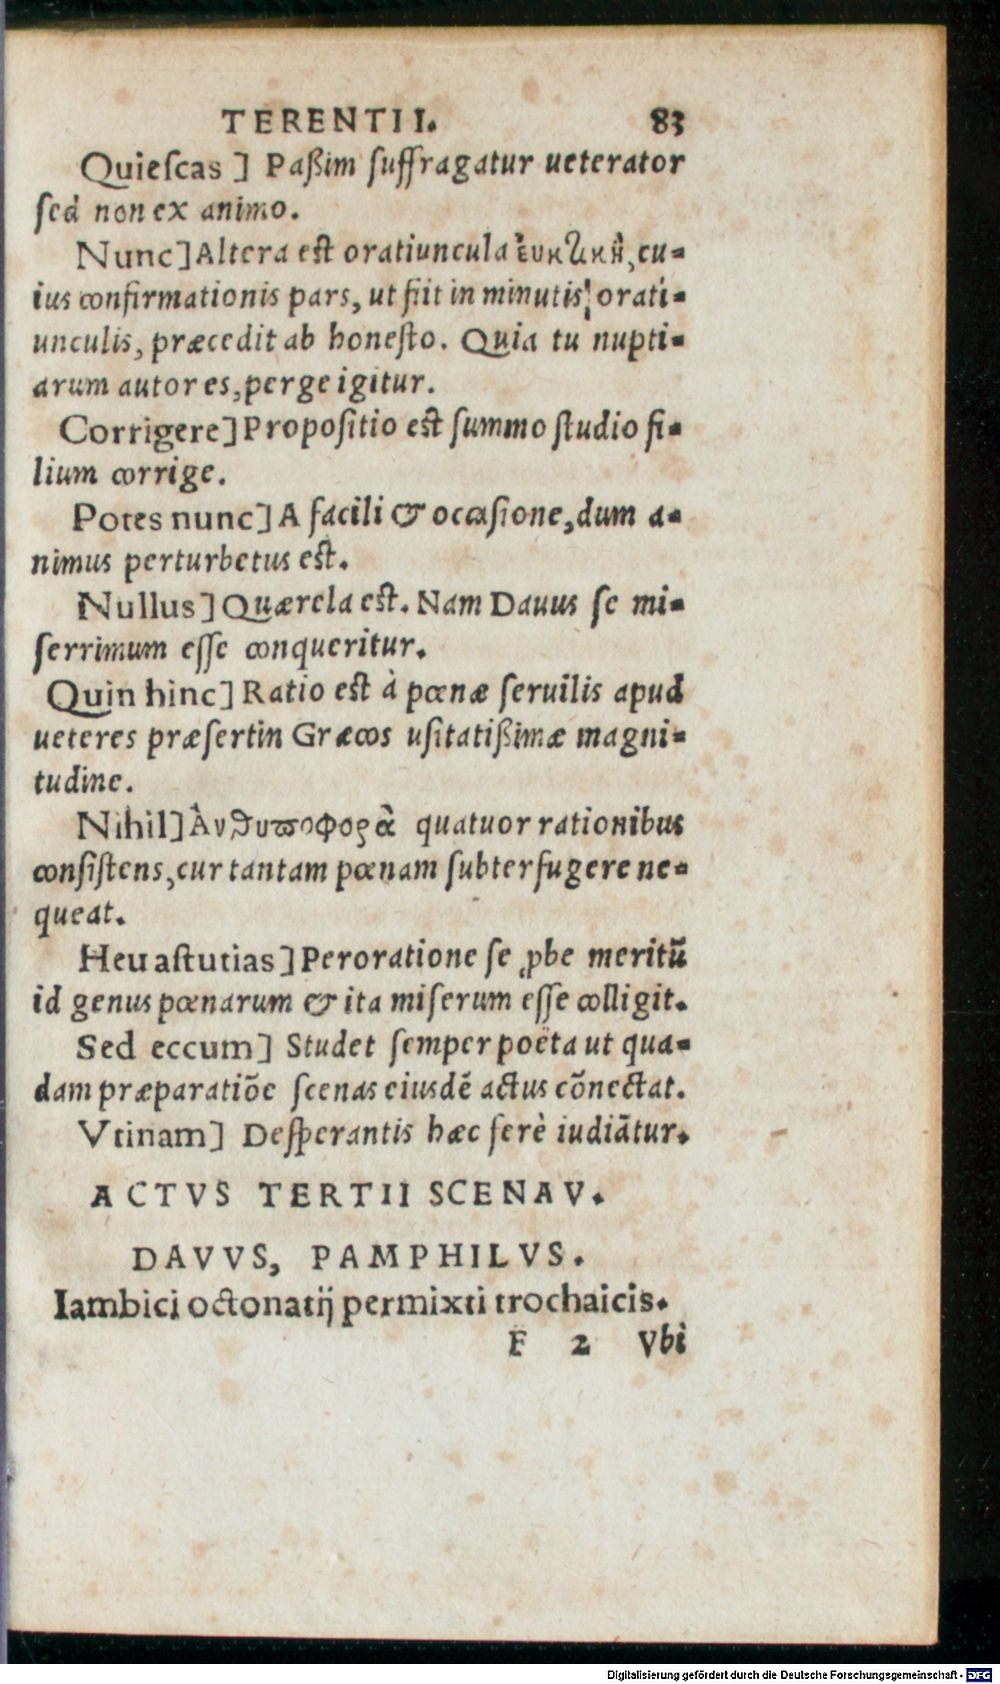 TERENTII. 83
Quiescas ] Paßim suffragatur ueterator
sed non ex animo.
Nunc] Altera est oratiuncula ἐυκτικὴ, cu-
ius confirmationis pars, ut fiit in minutis orati-
unculis, præcedit ab honesto. Quia tu nupti-
arum autor es, perge igitur.
Corrigere] Propositio est summo studio fi-
lium corrige.
Potes nunc] A facili & occasione, dum a-
nimus perturbetus est.
Nullus] Quærela est. Nam Dauus se mi-
serrimum esse conqueritur.
Quin hinc] Ratio est à pœnæ seruilis apud
ueteres præsertin Græcos usitatißimæ magni-
tudine.
Nihil] Ἀνθυποφορᾶ quatuor rationibus
consistens, cur tantam pœnam subterfugere ne-
queat.
Heu astutias] Peroratione se ꝓbe meritũ
id genus pœnarum & ita miserum esse colligit.
Sed eccum] Studet semper poëta ut qua-
dam præparatiõe scenas eiusdẽ actus cõnectat.
Vtinam] Desperantis hæc ferè iudiãtur.
ACTVS TERTII SCENA V.
DAVVS, PAMPHILVS.
Iambici octonatij permixti trochaicis.
F 2 Vbi
Digitalisierung gefördert durch die Deutsche Forschungsgemeinschaft - DFG